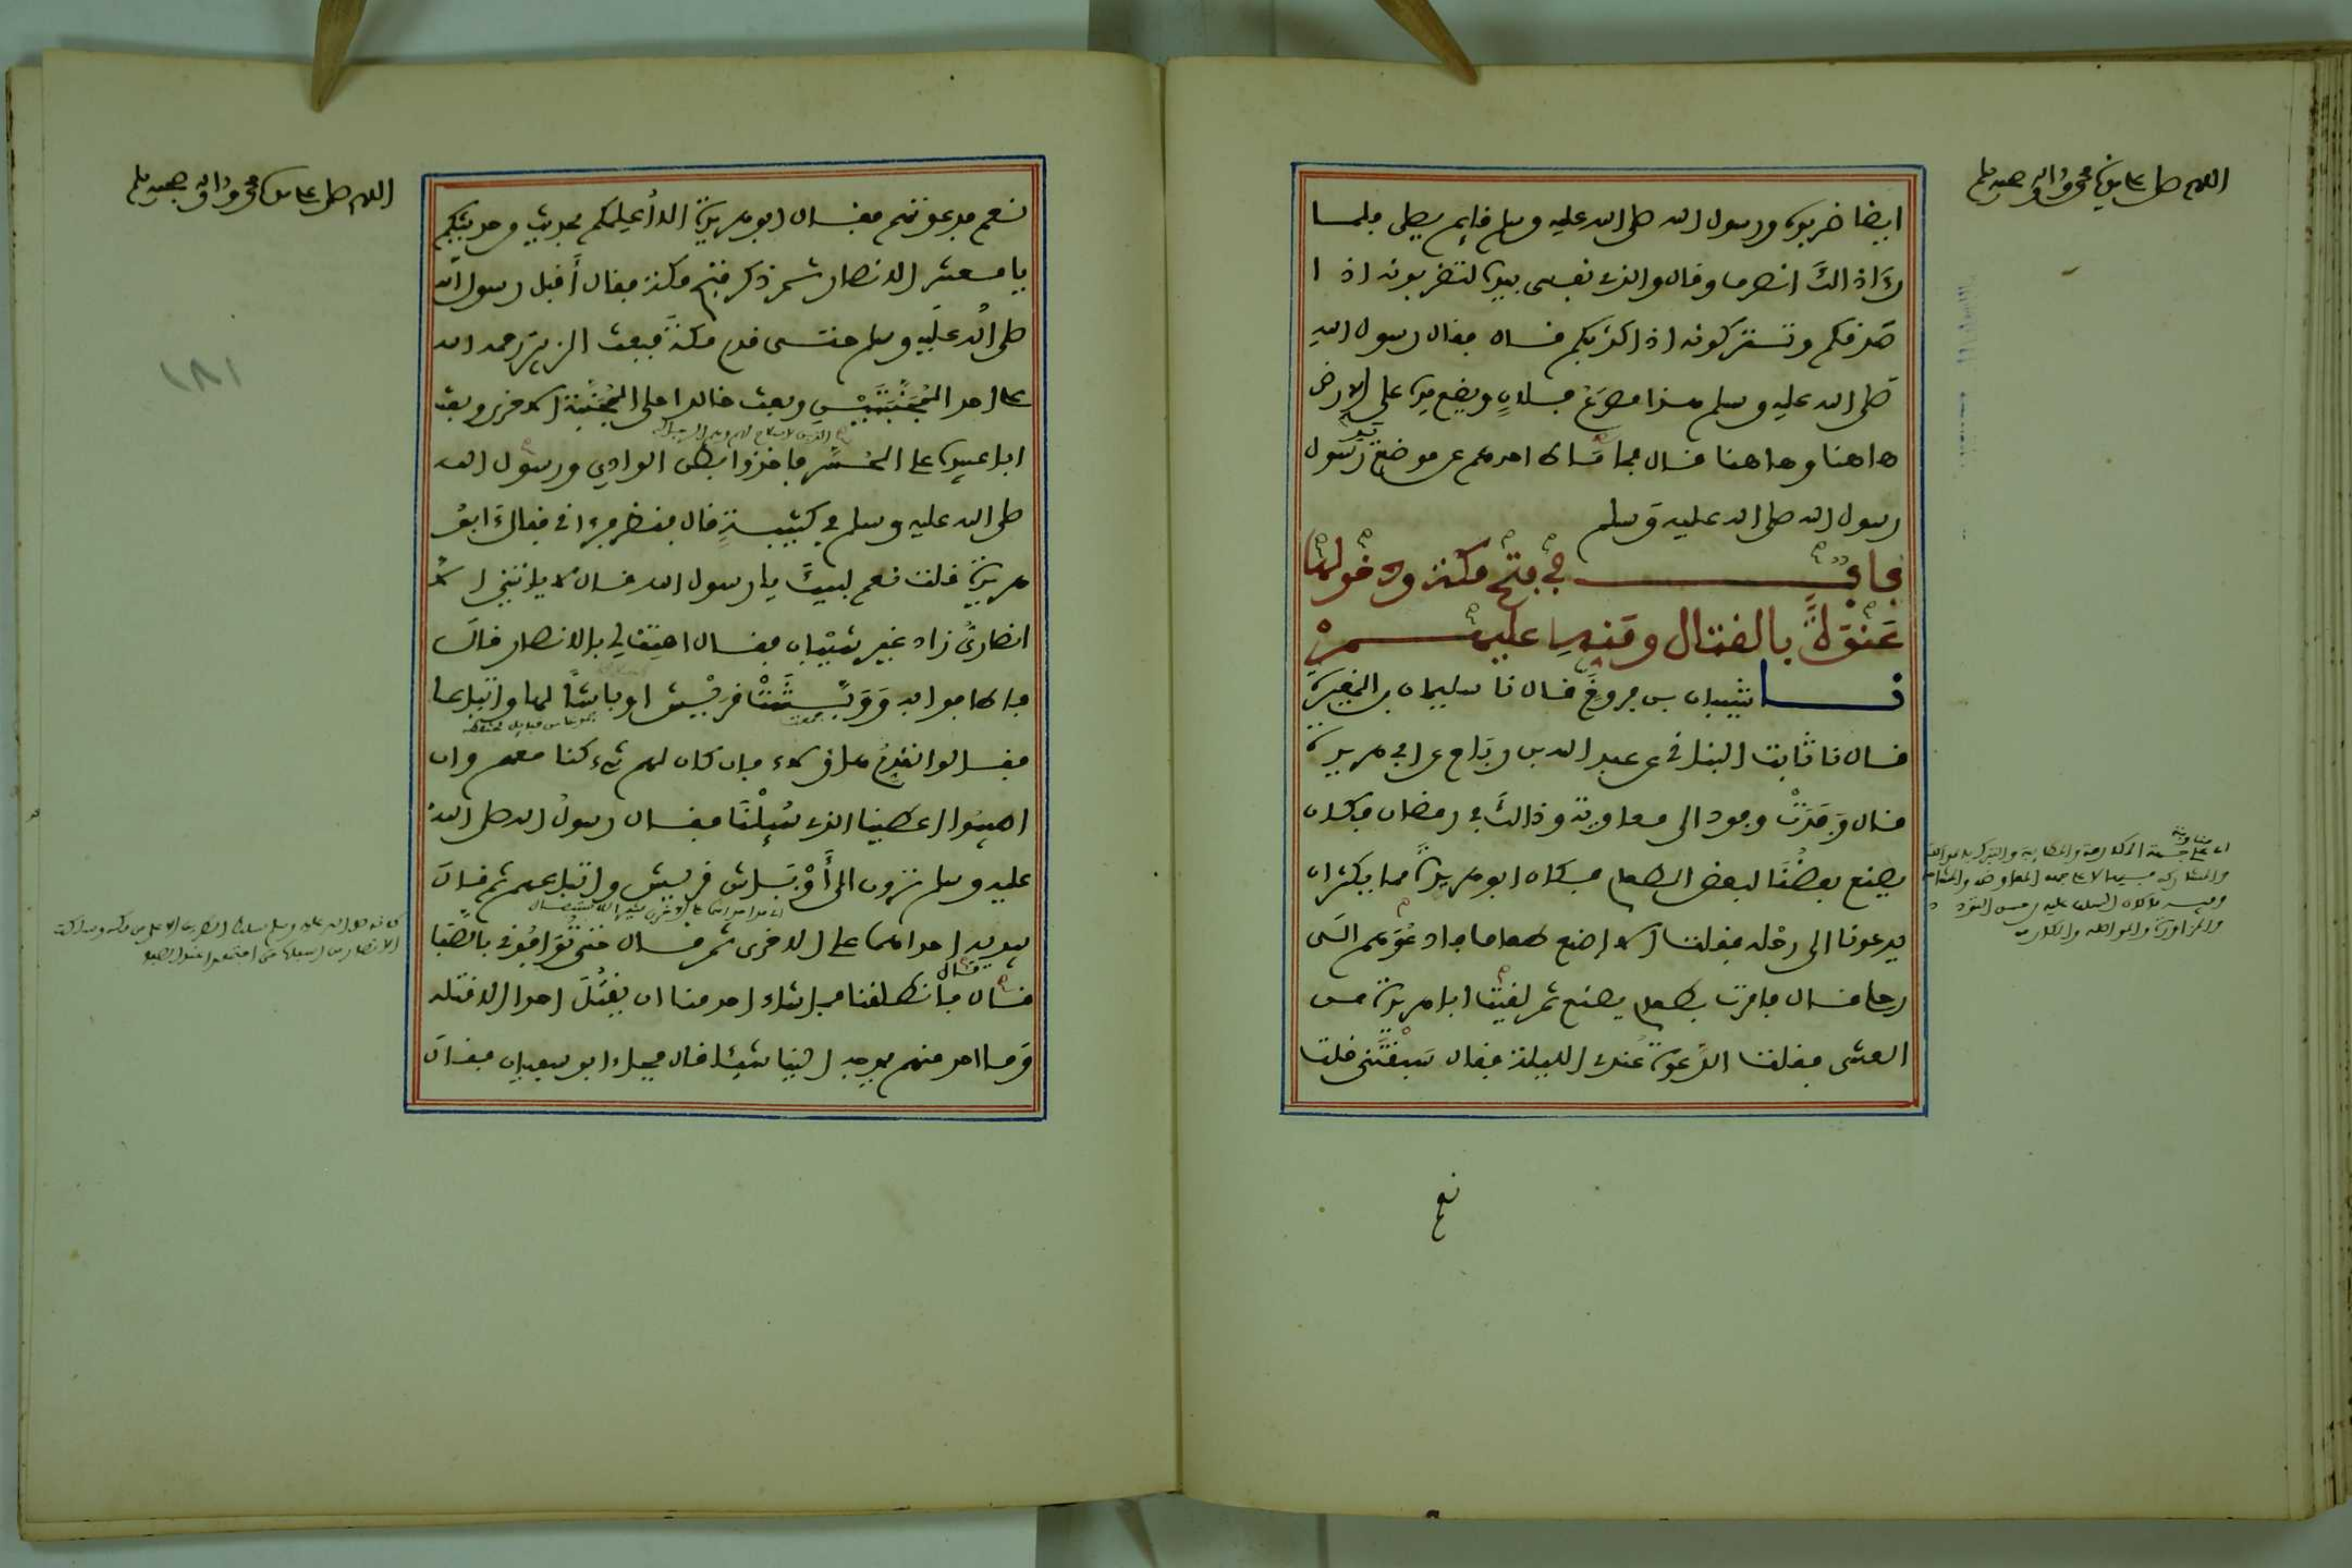 اللهم صل على سيدنا محمد واله وصحبه وسلم
ايضا ضربوه ورسول الله صلى الله عليه وسلم قايم يصلى فلما
رءا ذالك انصرف وقال والذي نفسي بيده لتضربونه اذا
صدقكم وتتركونه اذا كذبكم قال فقال رسول الله
صلى الله عليه وسلم هذا مصرع فلان ويضع يده على الارض
هاهنا وهاهنا قال فما ماط احدهم عن موضع يد رسول
رسول الله صلى الله عليه وسلم
باب في فتح مكة ودخولها
عنوة بالقتال ومنه عليهم
نا شيبان بن فروخ قال نا سليمان بن المغيرة
قال نا ثابت البناني عن عبد الله بن رباح عن ابي هريرة
قال وفدت وفود الى معاوية وذالك في رمضان فكان
يصنع بعضنا لبعض الطعام فكان ابو هريرة مما يكثر ان
يدعونا الى رحله فقلت الا اصنع طعاما فادعوهم الى
رحلي قال فامرت بطعام يصنع ثم لقيت ابا هريرة من
العشي فقلت الدعوة عندي الليلة فقال سبقتني قلت
نعم
اللهم صل على سيدنا محمد واله وصحبه وسلم
نعم فدعوتهم فقال ابو هريرة الا أعلمكم بحديث من حديثكم
يا معشر الانصار ثم ذكر فتح مكة فقال أقبل رسول الله
صلى الله عليه وسلم حتى قدم مكة فبعث الزبير رحمه الله
على احد المجنبتين وبعث خالدا على المجنبة الاخرى وبعث
ابا عبيدة على الحسر فاخذوا بطن الوادي ورسول الله
صلى الله عليه وسلم في كتيبة قال فنظر فرءاني فقال ابو
هريرة قلت نعم لبيك يا رسول الله قال لا ياتيني الا
انصاري زاد غير شيبان فقال اهتف لي بالانصار قال
فاطافوا به ووبشت قريش اوباشا لها واتباعا
فقالوا نقدم هؤلاء فان كان لهم شيء كنا معهم وان
اصيبوا اعطينا الذي سئلنا فقال رسول الله صلى الله
عليه وسلم ترون الى أوباش قريش واتباعهم ثم قال
بيديه احداهما على الاخرى ثم قال حتى توافوني بالصفا
قال فانطلقنا فما شاء احد منا ان يقتل احدا الا قتله
وما احد منهم يوجه الينا شيئا قال فجاء ابو سفيان فقال
١٨١